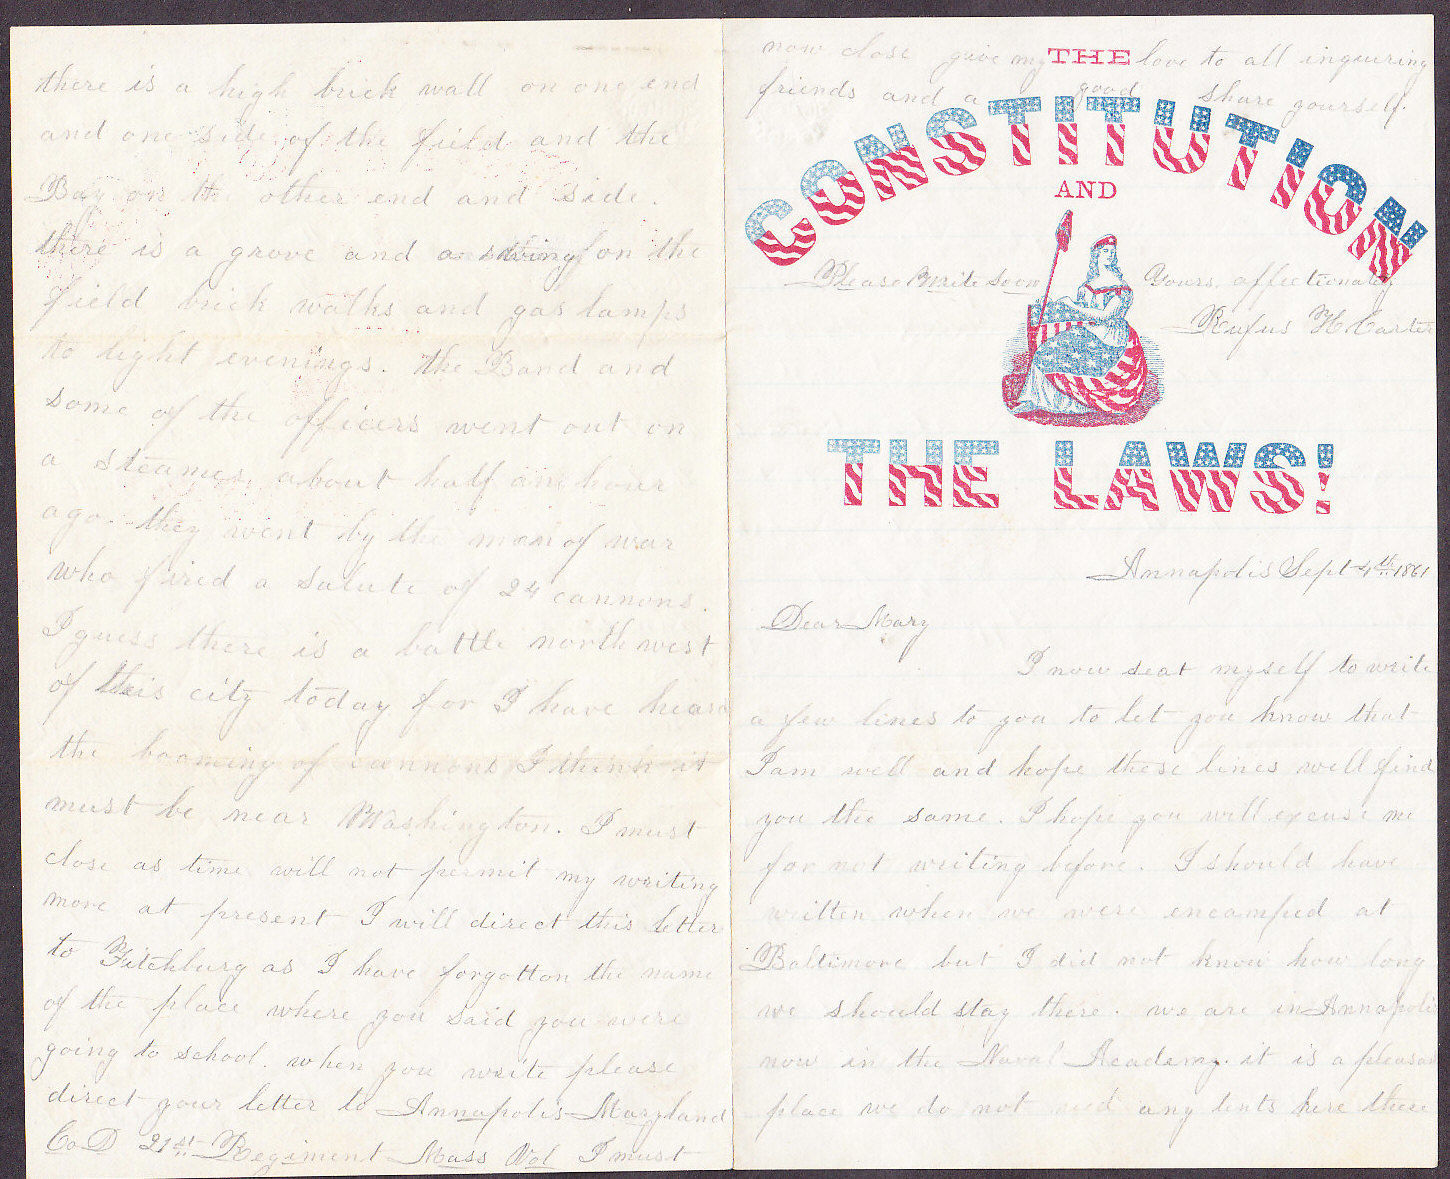 there is a high brick wall on one end
and one side of the field and the
Bay on the other end and side.
there is a grove and a swing on the
field brick walks and gas lamps
to light evenings. the Band and
some of the officers went out on
a steamer about half an hour
ago. they went by the man of war
who fired a salute of 24 cannons.
I guess there is a battle north west
of this city today for I have heard
the booming of cannons I think it
must be near Washington. I must
close as time will not permit my writing
more at present I will direct this letter
to Fitchburg as I have forgotton the name
of the place where you said you were
going to school. when you write please
direct your letter to Annapolis Maryland
Co D 21st Regiment Mass Vol I must
now close give my love to all inquiring
friends and a good share yourself.
THE
CONSTITUTION
AND
THE LAWS!
Please Write Soon Yours affectionately
Rufus H Carter
Annapolis Sept 4th 1861
Dear Mary
I now seat myself to write
a few lines to you to let you know that
I am well and hope these lines will find
you the same. I hope you will excuse me
for not writing before. I should have
written when we were encamped at
Baltimore but I did not know how long
we should stay there. we are in Annapolis
now in the Naval Academy. it is a pleasan
place we do not need any tents here there